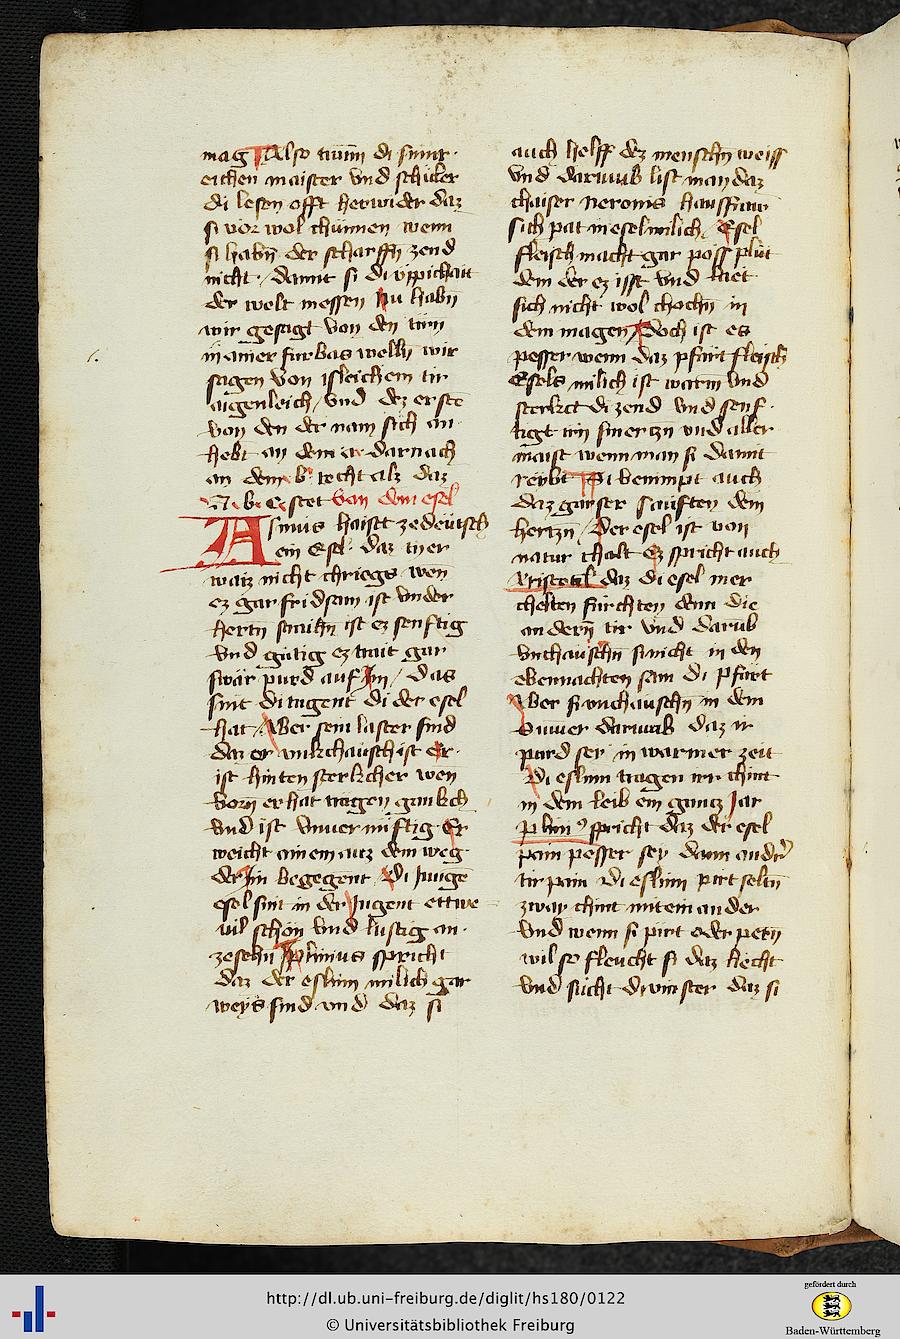 mag Also tuͤnn di sinnr
eichen maister vnd schuͤler
di lesen offt herwider daz
si vor wol chuͤnnen wenn
si habn̄ der scharffn̄ zend
nicht / damit si di vppichait
der welt messen Nu habn̄
wir gesagt von den tirn̄
in ainer fürbas welln̄ wir
sagen von isleichem tir
aigenleich / vnd dez erste
von den der nam sich an
hebt an dem a· darnach
an dem b· recht alz daz
a· b· c· stet von dem esel
Asinus haisst ze deütsch
ein Esel daz tyer
waiz nicht chriegs wen
ez gar fridsam ist vnder
hertn̄ ist ez senftig
vnd gütig ez trait gar
swär pürd auf Im / Das
sint di tugent di der esel
hat Aber sein laster sind
daz er vnkchäusch ist Er
ist hinten sterkcher wen
vorn̄ er hat trägen gankch
vnd ist vnuernüftig Er
weicht ainem nicz dem weg
der Im begegent Di Junge
esel sint in der Jugent ettwe
vil schön vnd lustig an
zesehn̄ Plinius spricht
daz der eslinn milich gar
weys sind vnd daz si
auch helff dez menschn̄ weiss
vnd darumb list man daz
chaiser neronis haussfraw
sich pat in esel milich / Esel
fleisch macht gar poss plüt
dem der ez isst vnd laet
sich nicht wol chochn̄ in
dem magen / doch ist es
pesser wenn daz pfärt fleisch
Esels milich ist warm vnd
sterkct di zend vnd senf
tigt irn smerczn vnd aller
maist wenn man si damit
reybt Si benimpt auch
daz gärser säuften dem
hertzn̄ / Der esel ist von
natur chalt Ez spricht auch
Aristotil daz di esel mer
chelten fürchten denn die
andern̄ tir vnd darub
vnchäuschn̄ si nicht in den
ebennachten sam di pfärt
Aber si vnchäuschn̄ in dem
Summer darumb daz ir
pürd sey in warmer zeit
Di eslinn tragen irr chint
in dem leib ein gancz Jar
Plini⁹ spricht daz der esel
pain pesser sey dann andr̄
tir pain Di eslinn pirt seltn̄
zwai chint mit einander
vnd wenn si pirt oder pern̄
wil so fleucht si daz liecht
vnd sücht di vinster daz si
http://dl.ub.uni-freiburg.de/diglit/hs180/0122
© Universitätsbibliothek Freiburg
gefördert durch
Baden-Württemberg